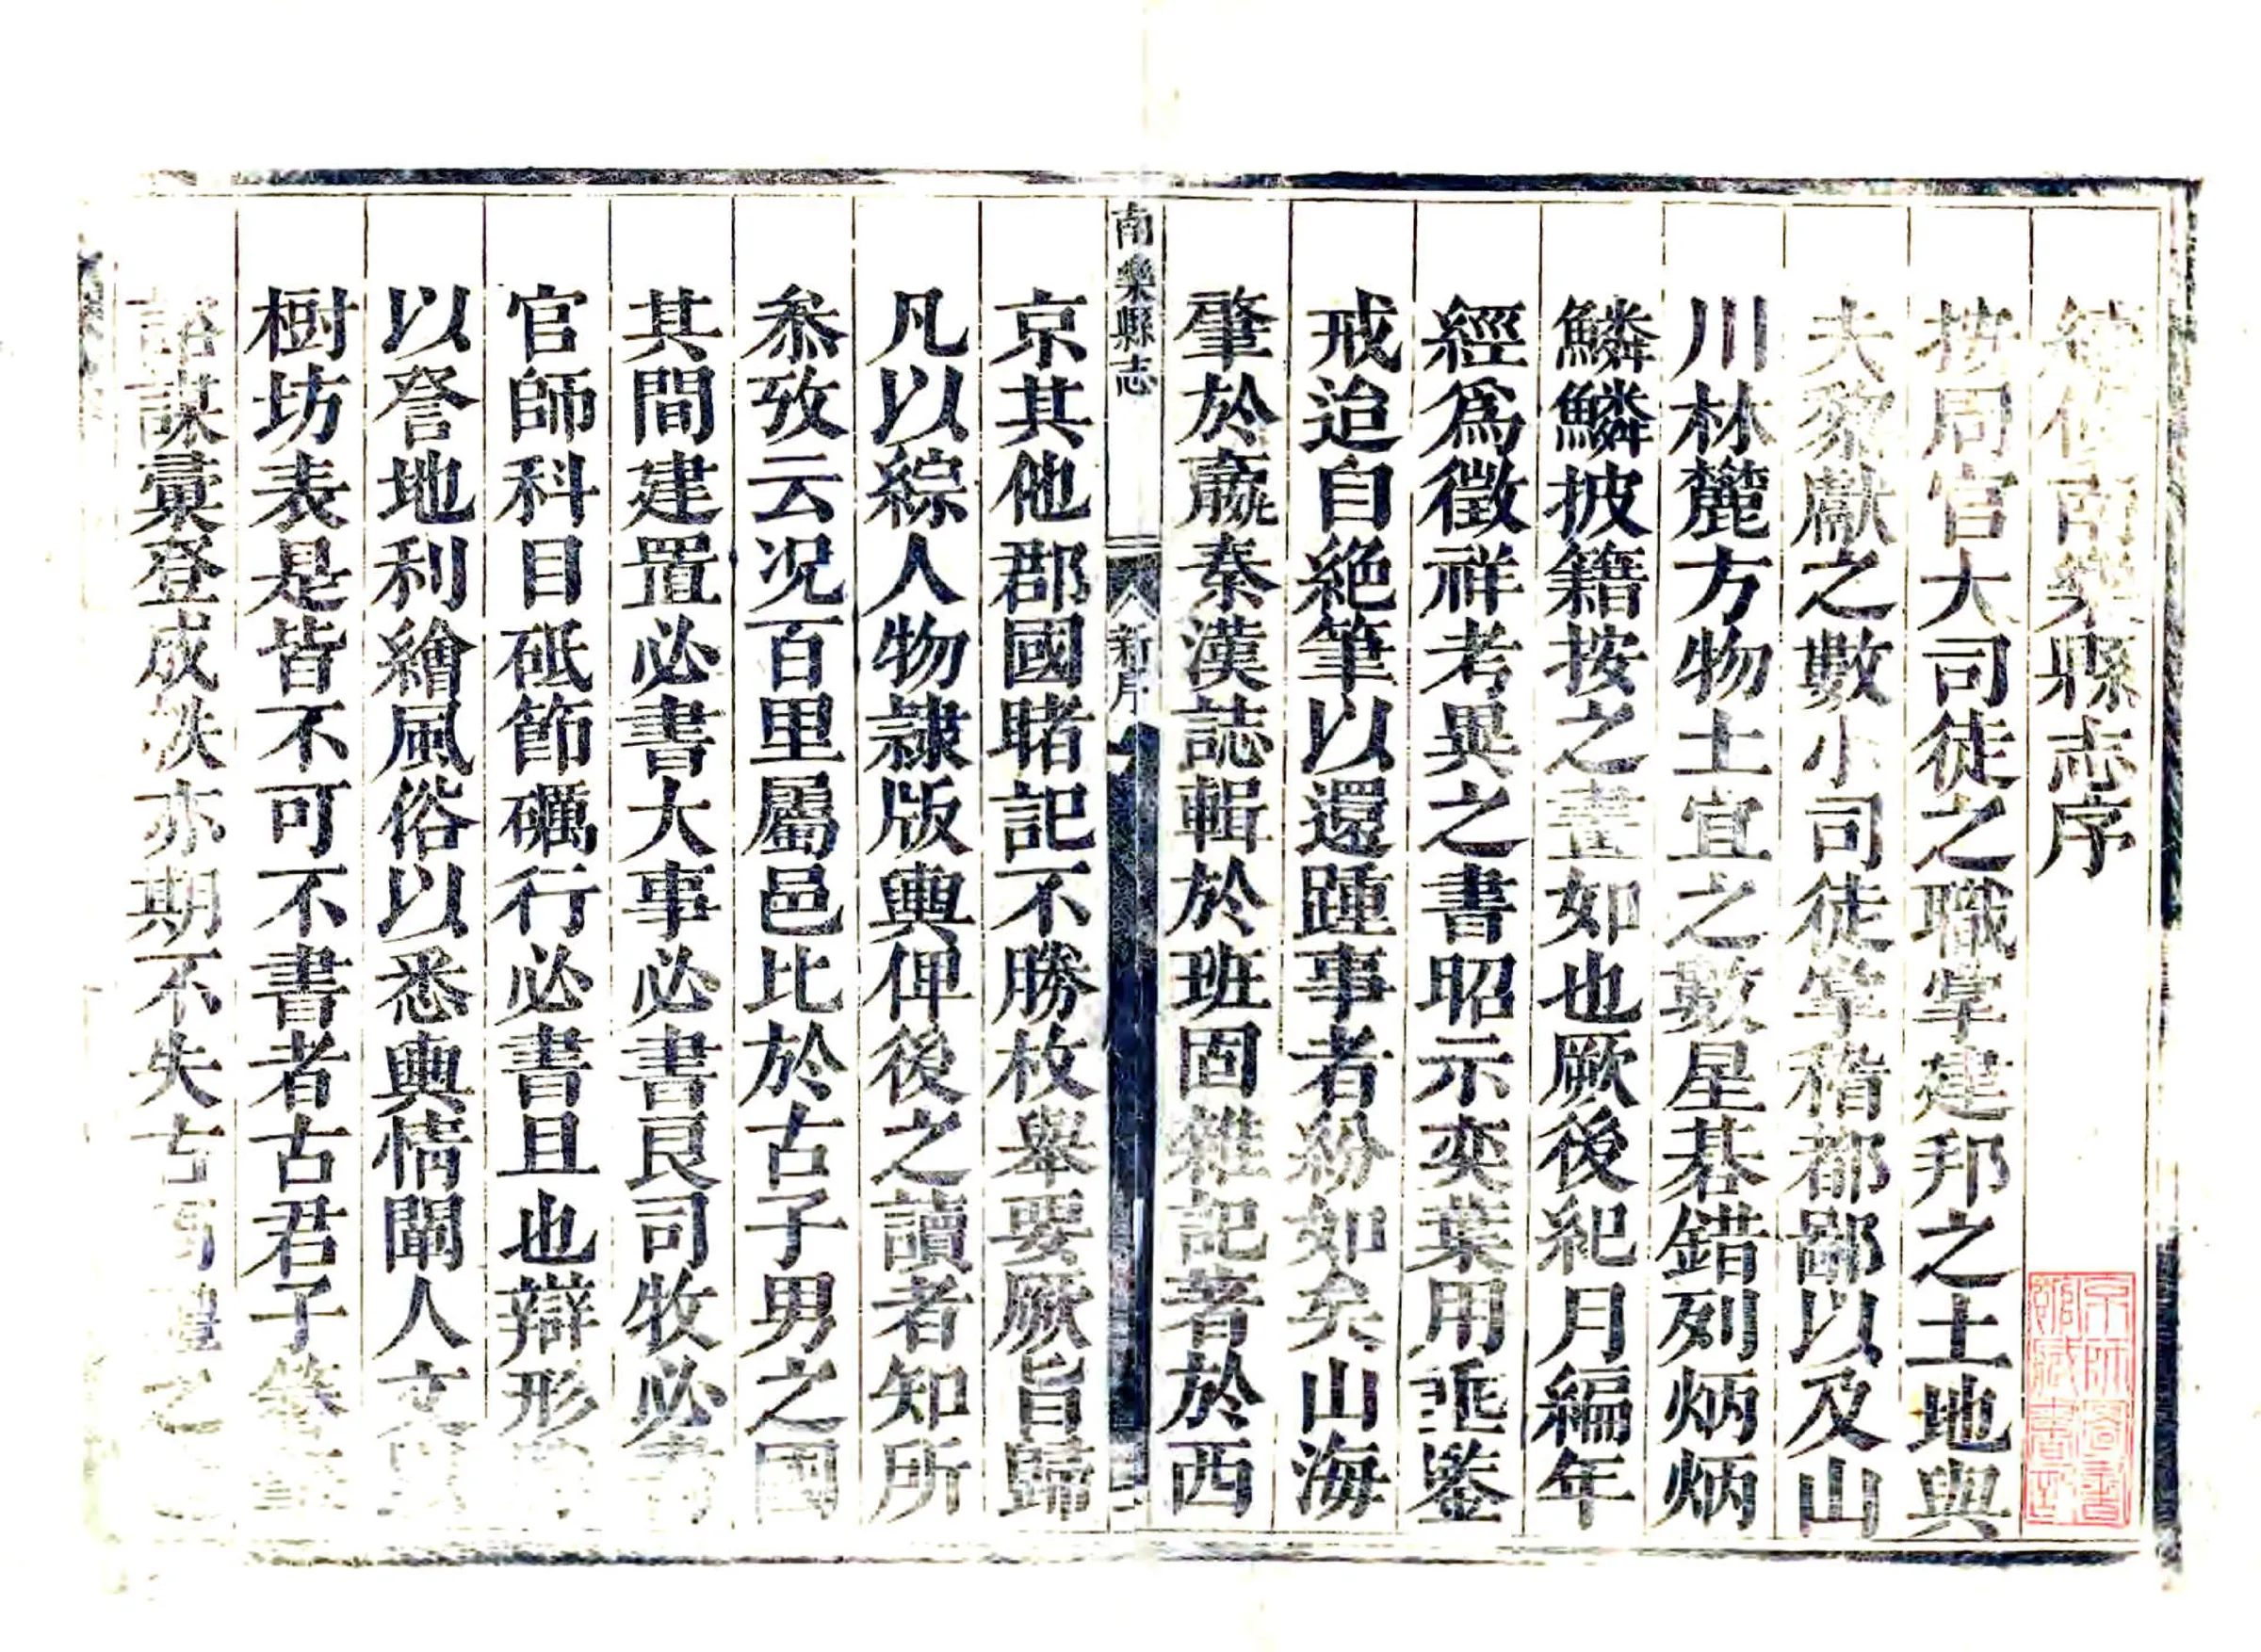 續修南樂縣志序
按周官大司徒之職掌建邦之土地與
夫黎獻之數小司徒掌稽都鄙以及山
川林麓方物土宜之數星碁錯列炳炳
鱗鱗披籍按之畫如也厥後紀月編年
經爲徵祥考異之書昭示奕葉用垂鑒
戒迨自絶筆以還踵事者紛如矣山海
肇於嬴秦漢誌輯於班固雜記著於西
南樂縣志
新序
京其他郡國睹記不勝枚舉要厥旨歸
凡以綜人物隷版輿俾後之讀者知所
叅攷云況百里屬邑比於古子男之國
其間建置必書大事必書良司牧必書
官師科目砥節礪行必書且也辯形
以詧地利繪風俗以悉輿情闡人文以
樹坊表是皆不可不書者古君子
謀彙登成帙亦期不失古之